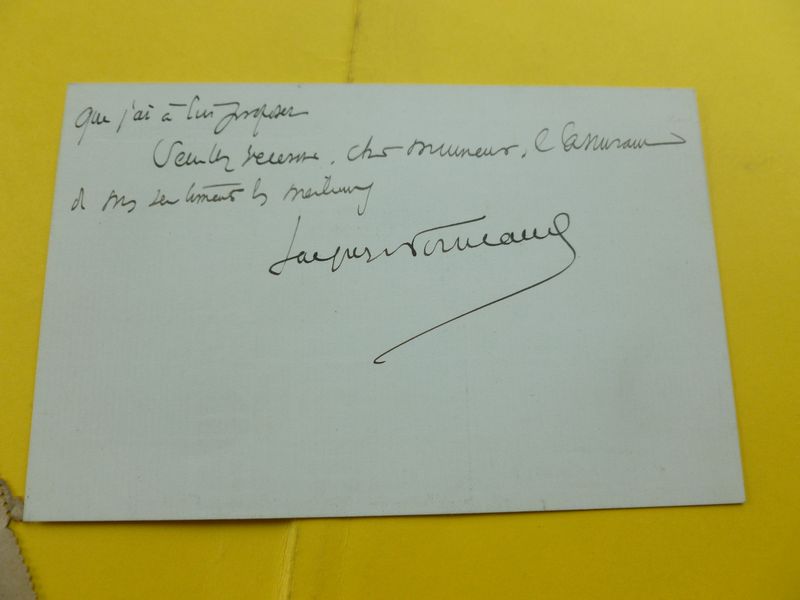 que j'ai à lui proposer
Veuillez recevoir, cher monsieur, l'assurance
de mes sentiments les meilleurs
Jacques Normand